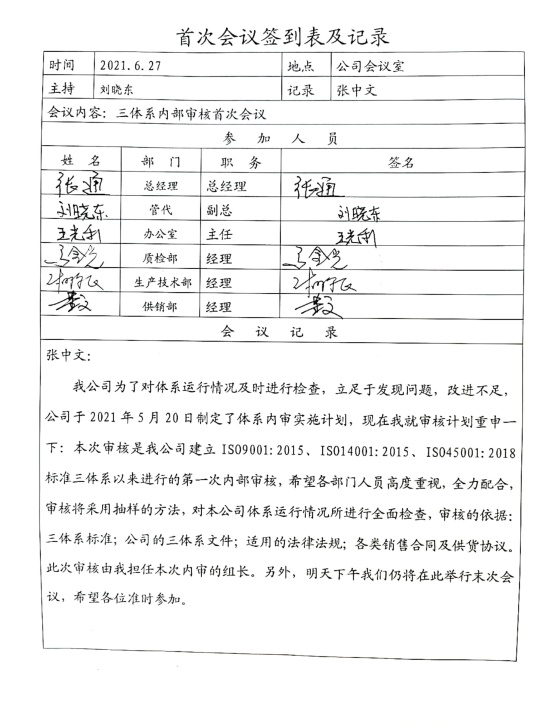 首次会议签到表及记录
时间 2021.6.27 地点 公司会议室
主持 刘晓东 记录 张中文
会议内容：三体系内部审核首次会议
参 加 人 员
姓 名 部 门 职 务 签名
张通 总经理 总经理 张通
刘晓东 管代 副总 刘晓东
王光利 办公室 主任 王光利
质检部 经理
生产技术部 经理
供销部 经理
会 议 记 录
张中文：
我公司为了对体系运行情况及时进行检查，立足于发现问题，改进不足，
公司于 2021 年 5 月 20 日制定了体系内审实施计划，现在我就审核计划重申一
下：本次审核是我公司建立 ISO9001:2015、ISO14001:2015、ISO45001:2018
标准三体系以来进行的第一次内部审核，希望各部门人员高度重视，全力配合，
审核将采用抽样的方法，对本公司体系运行情况所进行全面检查，审核的依据：
三体系标准；公司的三体系文件；适用的法律法规；各类销售合同及供货协议。
此次审核由我担任本次内审的组长。另外，明天下午我们仍将在此举行末次会
议，希望各位准时参加。